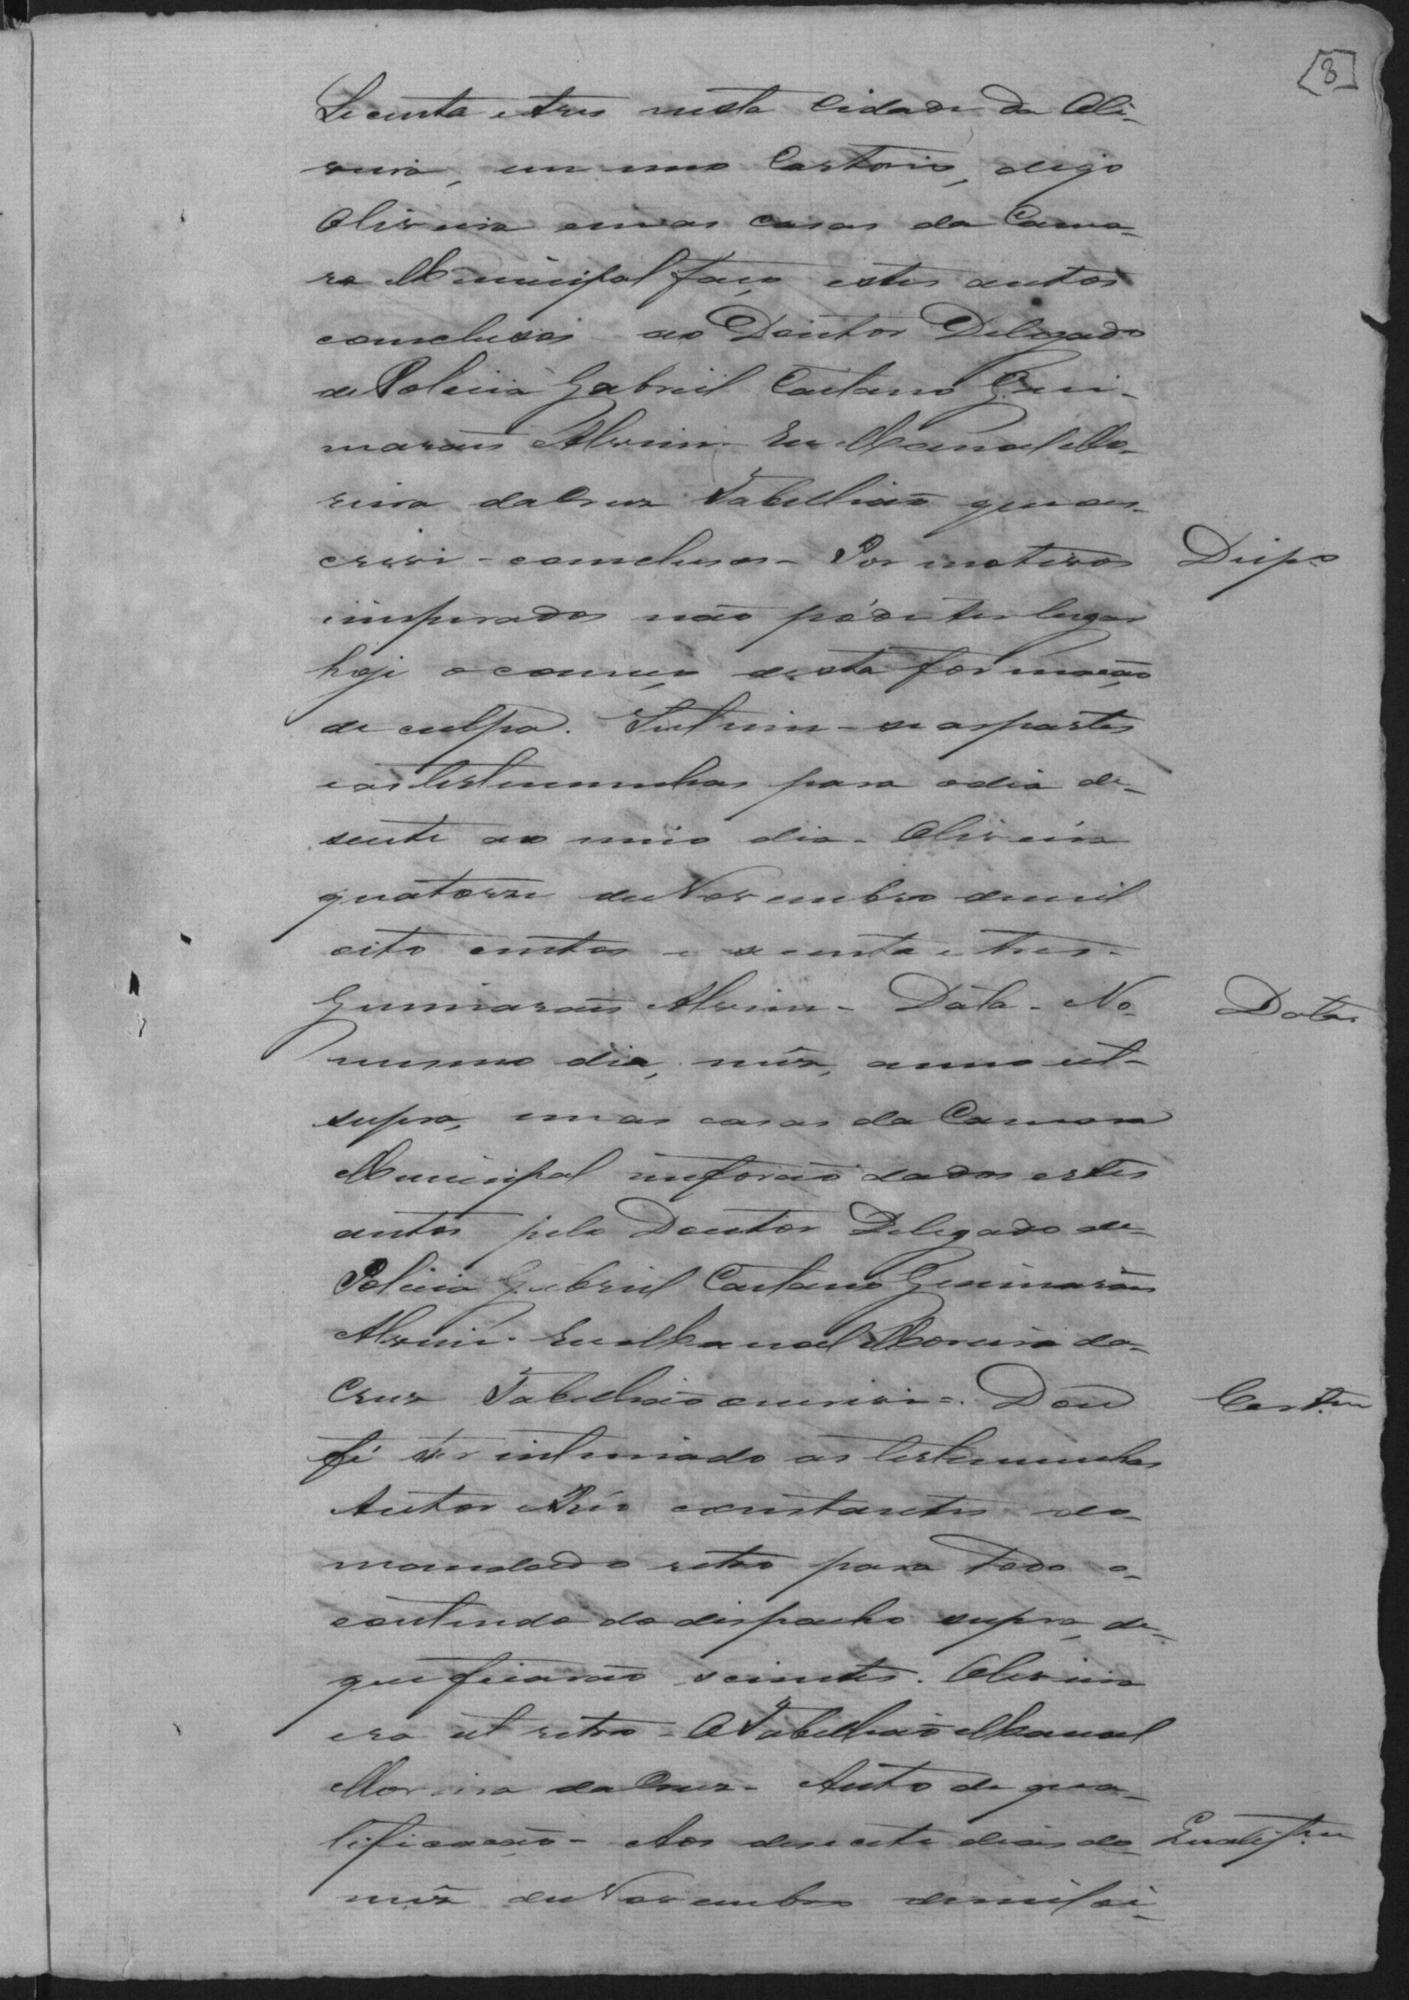 8
Secenta e tres nesta Cidade da Oli-
veira, em meo Cartorio, digo
Oliveira em as casas da Cama-
ra Municipal faço estes autos
conclusos ao Doutor Delegado
de Policia Gabriel Caetano Gui-
maraes Alvim. Eu Manoel Mo-
reira da Cruz Tabellião que es-
crevi - conclusos - Por motivos Desp.o
imperados não póde ter lugar
hoje o começo desta formação
de culpa. Intimem-se as partes
e as testemunhas para o dia de-
sente ao meio dia. Oliveira
quatorze de Novembro de mil
oito centos e secenta e tres.
Guimaraes Alvim - Data - No Data
mesmo dia, mêz, anno ut
supra, em as casas da Camara
Municipal me forão dados estes
autos pelo Doutor Delegado de
Policia Gabriel Caetano Guimarães
Alvim. Eu Manoel Moreira da
Cruz Tabellião escrivi =. Dou Cert.am
fé ter intimado as testemunhas
Autor e Réo constantes do
mandado retro para todo o
contendo do despacho supra, de
que ficarão scientes. Oliveira
era ut retro - O Tabellião Manoel
Moreira da Cruz - Auto de qua-
lificação - Aos desecete dias do Qualif.am
mêz de Novembro de mil oi-